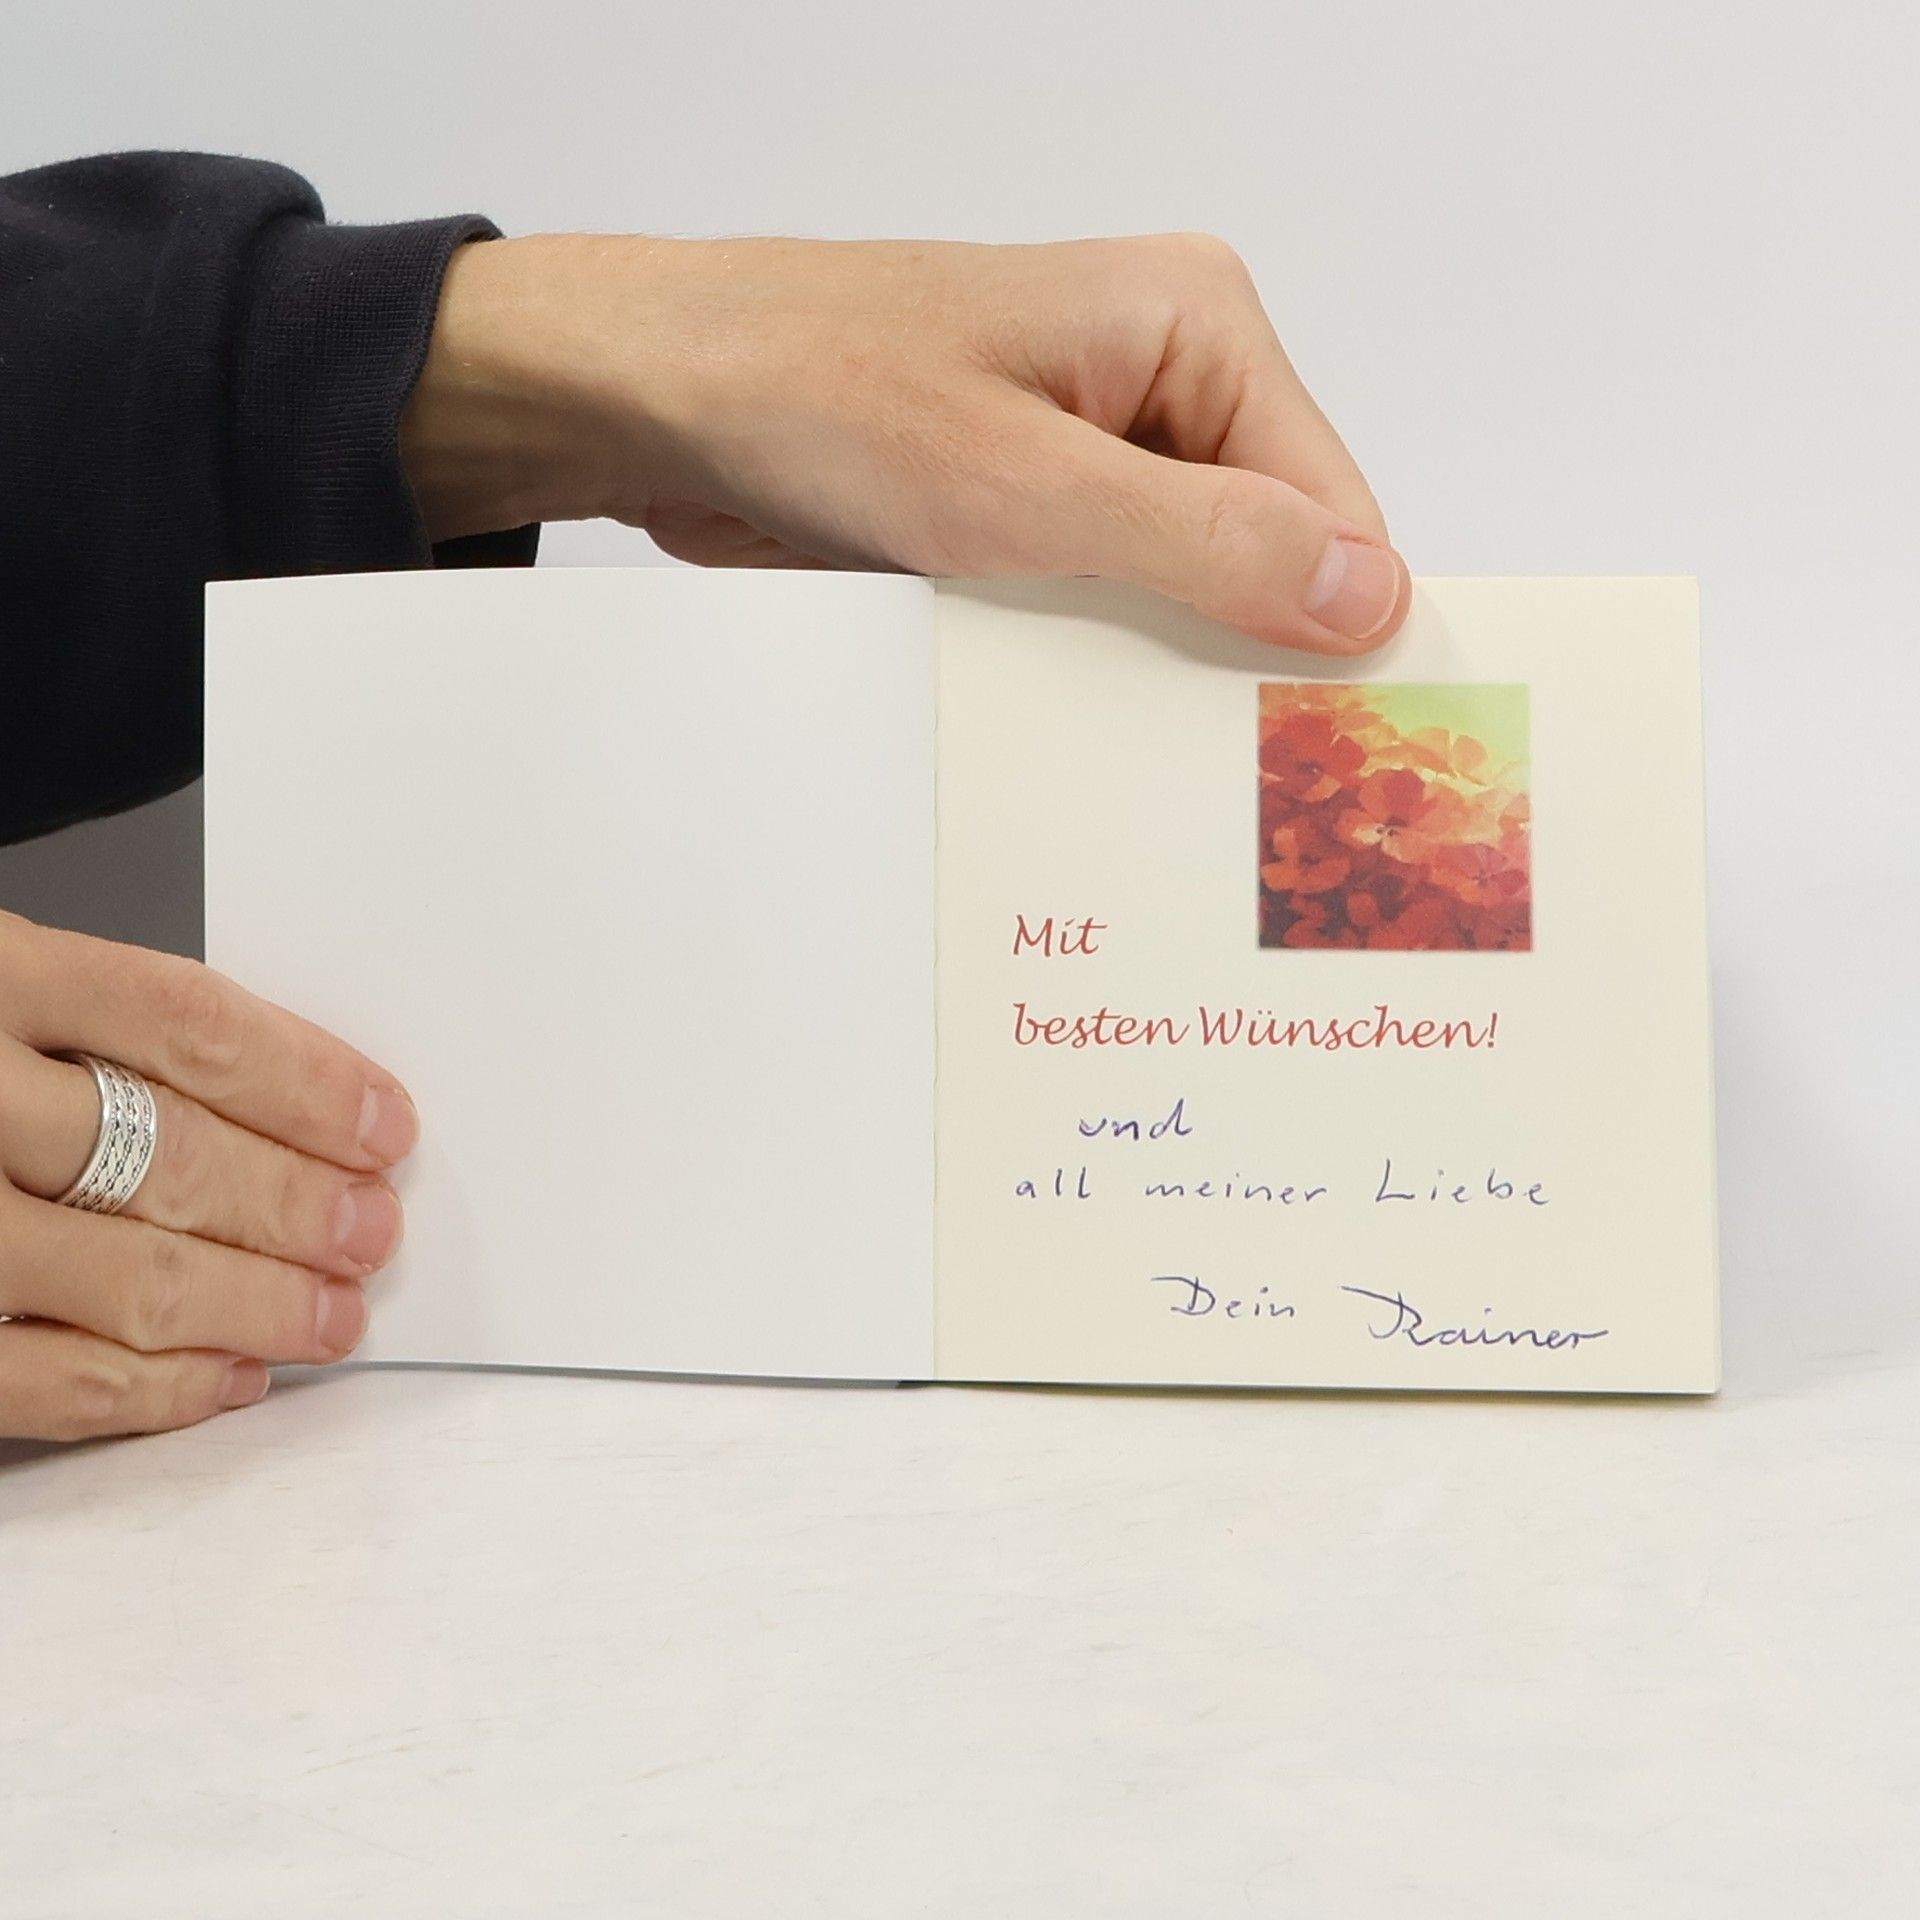 Mit
besten Wünschen!
und
all meiner Liebe
Dein Rainer